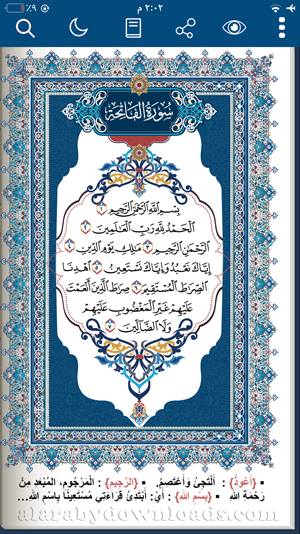 ٩٪
٢:٠٢ م
سُورَةُ الفَاتِحَةِ
بِسْمِ ٱللَّهِ ٱلرَّحْمَٰنِ ٱلرَّحِيمِ ١
ٱلْحَمْدُ لِلَّهِ رَبِّ ٱلْعَٰلَمِينَ ٢
ٱلرَّحْمَٰنِ ٱلرَّحِيمِ ٣ مَٰلِكِ يَوْمِ ٱلدِّينِ ٤
إِيَّاكَ نَعْبُدُ وَإِيَّاكَ نَسْتَعِينُ ٥ ٱهْدِنَا
ٱلصِّرَٰطَ ٱلْمُسْتَقِيمَ ٦ صِرَٰطَ ٱلَّذِينَ أَنْعَمْتَ
عَلَيْهِمْ غَيْرِ ٱلْمَغْضُوبِ عَلَيْهِمْ
وَلَا ٱلضَّآلِّينَ ٧
▪ {أَعُوذُ} : أَلْتَجِئُ وَأَعْتَصِمُ. ▪ {الرَّجِيمِ} : الْمَرْجُومِ، الْمُبْعَدِ مِنْ
رَحْمَةِ اللهِ ▪ {بِسْمِ اللهِ} : أَيْ: أَبْتَدِئُ قِرَاءَتِي مُسْتَعِينًا بِاسْمِ اللهِ...
alarabydownloads.com